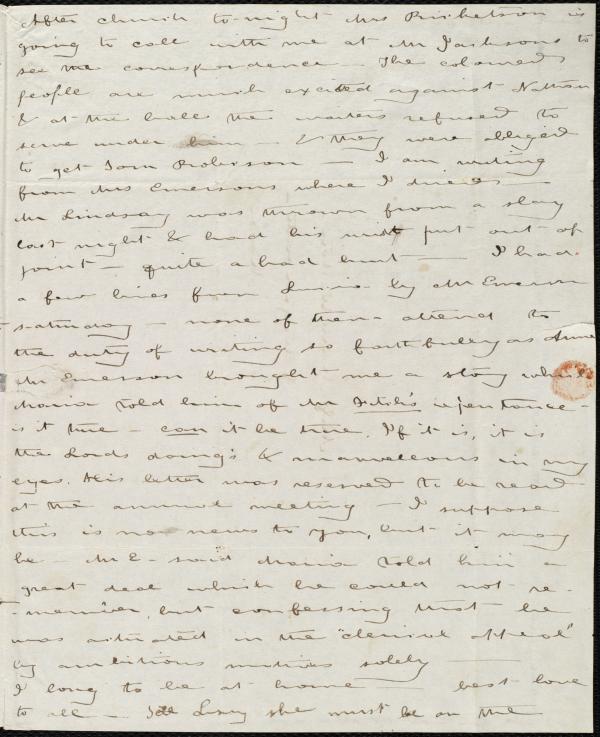 After church to-night Mrs Ricketson is
going to call with me at Mr Jacksons to
see the correspondence — The coloured
people are much excited against Nathan
& at the balls the waiters refused to
serve under him — & they were obliged
to get Tom Robinson — I am writing
from Mrs Emersons where I dined —
Mr Lindsay was thrown from a slay
last night & had his put out of
joint — quite a bad hurt — I had
a few lines from by Mr Emerson
saturday — none of them attend to
the duty of writing so faithfully as Anne
Mr Emerson brought me a story which
Maria told him of Mr Fitch's repentance —
is it true — can it be true. If it is, it is
the Lords doings & marvellous in my
eyes. His letter was reserved to be read
at the annual meeting — I suppose
this is no news to you, but it may
be — Mr E- said Maria told him a
great deal which he could not re-
-member, but confessing that he
was actuated in the "clerical appeal"
by ambitious motives solely —
I long to be at home — best love
to all — Tell Lucy she must be on the